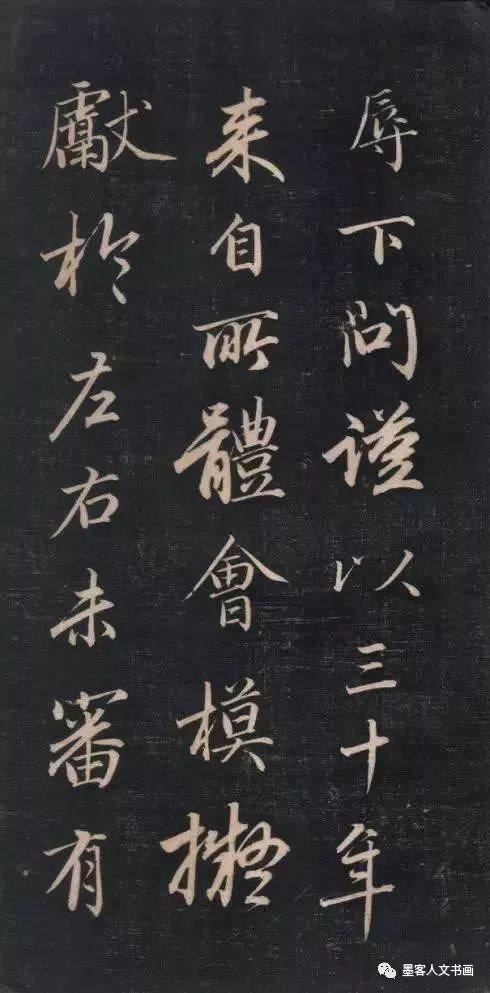 辱下問謹以三十年
来自所體會模擬
獻於左右未審有
墨客人文书画